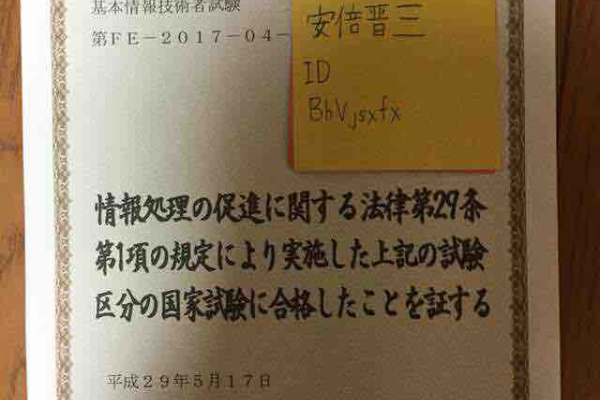 基本情報技術者試験
第FE-2017-04-
安倍晋三
ID
BbVjsxfx
情報処理の促進に関する法律第29条
第1項の規定により実施した上記の試験
区分の国家試験に合格したことを証する
平成29年5月17日